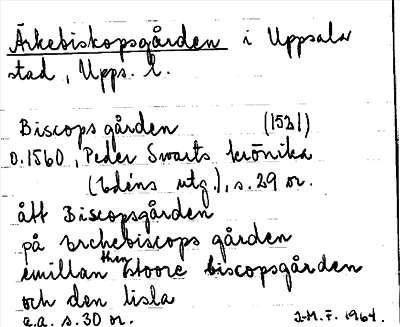 Ärkebiskopsgården i Uppsala
stad, Upps. l.
Biscops gården (1521)
o. 1560, Peder Swarts krönika
(Edéns utg.), s. 29 or.
ått Biscopsgården
på Erchebiscops gården
emillan then stoore biscopsgården
och den lisla
a.a. s. 30 or. J-M. F. 1964.